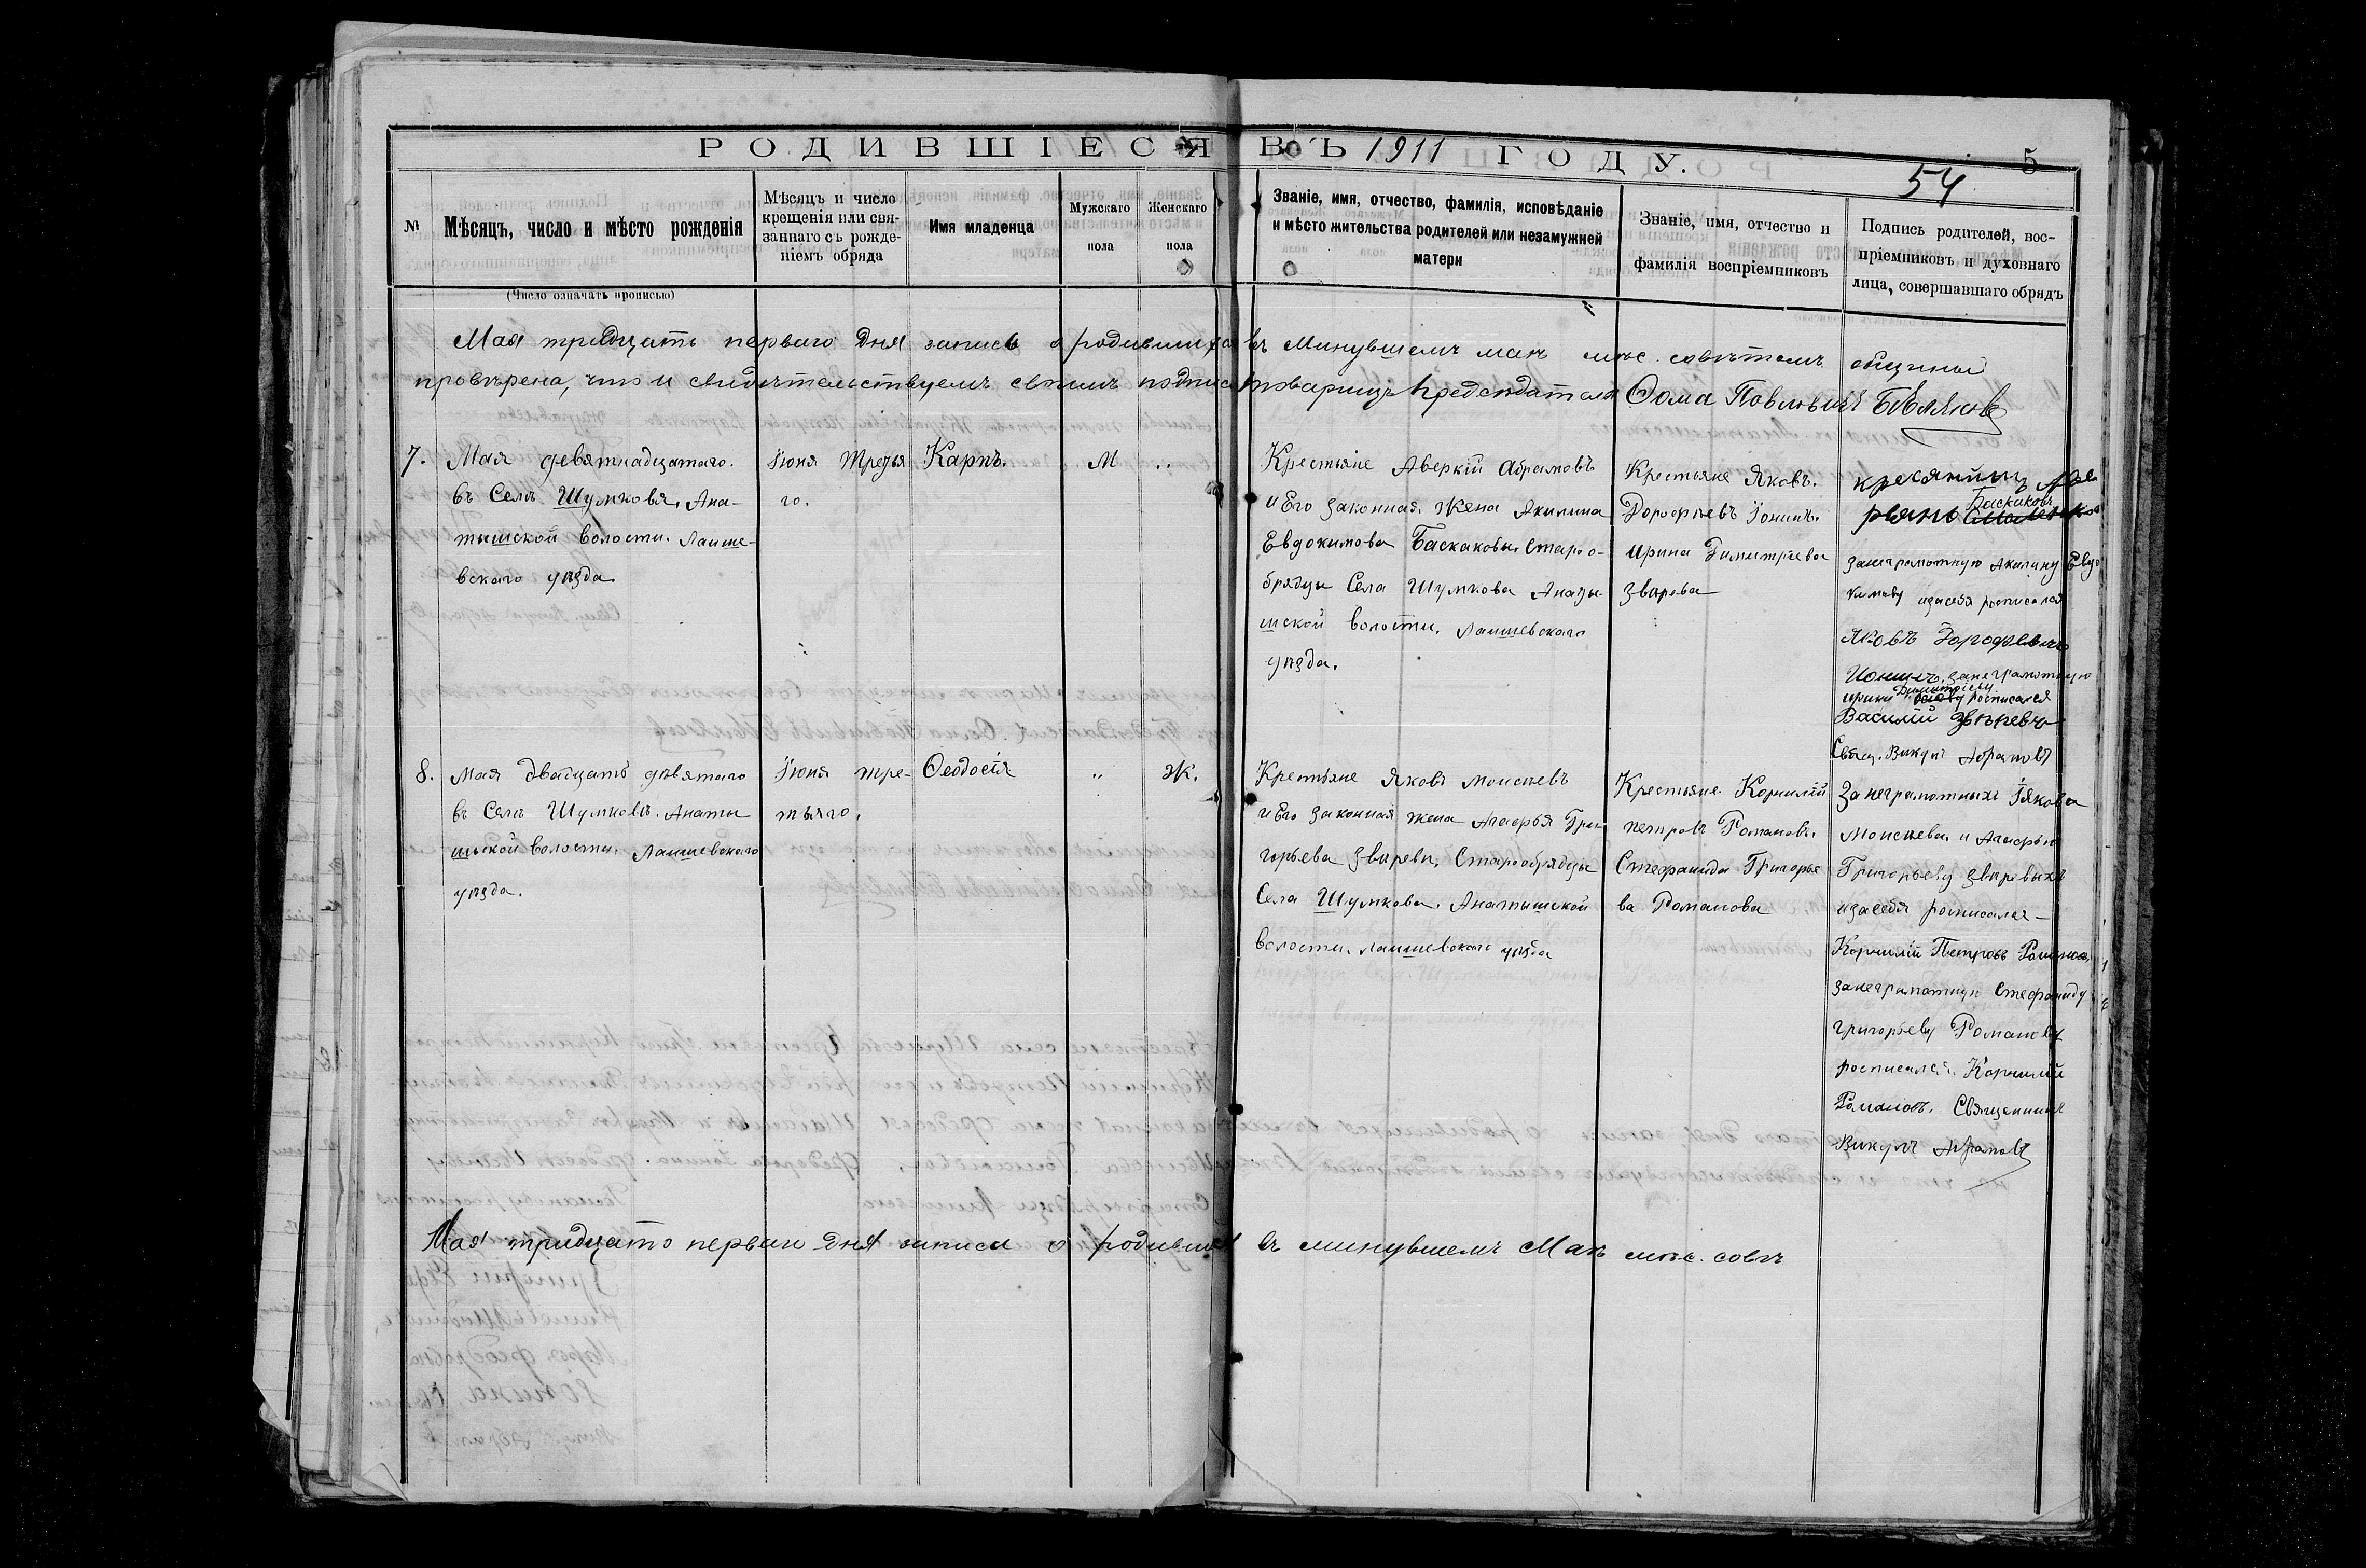 РОДИВШІЕСЯ ВЪ 1911 ГОДУ.
5
54
№
Мѣсяцъ, число и мѣсто рожденія
(Число означать прописью)
Мѣсяцъ и число
крещенія или свя-
заннаго съ рожде-
ніемъ обряда
Имя младенца
Мужскаго
пола
Женскаго
пола
Званіе, имя, отчество, фамилія, исповѣданіе
и мѣсто жительства родителей или незамужней
матери
Званіе, имя, отчество и
фамилія воспріемниковъ
Подпись родителей, вос-
пріемниковъ и духовнаго
лица, совершавшаго обрядъ
Мая тридцать перваго дня запись о родившихся въ минувшемъ маѣ мѣс. совѣтомъ общины
провѣрена, что и свидѣтельствуемъ своимъ подпис товарищъ предсѣдателя Ѳома Павловичъ Бѣляковъ
7.
Мая девятнадцатаго.
въ Селѣ Шумковѣ, Ана-
тышской волости. Лаише-
вскаго уѣзда
Іюня Третья
го.
Карпъ.
М
"
Крестьяне Аверкій Абрамовъ
и Его законная жена Акилина
Евдокимова Баскаковы. Старо о-
брядцы Села Шумкова Анаты-
шской волости. Лаишевскаго
уѣзда.
Крестьяне Яковъ.
Дорофѣевъ Іонинъ.
Ирина Димитріева
Звѣрева
кресянинъ Аве
рьянъ
Баскаковъ
занеграмотную Акилину Евдо
кимову изасебя росписался
Яковъ Дорофеевъ
Іонинъ, занеграмотную
Ирину Димитріеву росписался
Василій Звѣревъ
Свящ. Викулъ Абрамовъ
8.
Мая двадцать девятаго
въ Селѣ Шумковѣ. Анаты
шской волости. Лаишевскаго
уѣзда.
Іюня тре-
тьяго.
Ѳеодосія
"
Ж.
Крестьяне Яковъ Моисеевъ
и Его законная жена Агафья Гри-
горьева Звѣревы, Старообрядцы
Села Шумкова. Анатышской
волости. Лаишевскаго уѣзда
Крестьяне Корнилій
Петровъ Романовъ.
Стефанида Григорье
ва Романова
За неграмотныхъ Іякова
Моисеева и Агафью
Григорьеву Звѣревыхъ
изасебя росписался
Корнилій Петровъ Романовъ,
занеграмотную Стефаниду
Григорьеву Романову
росписался Корнилій
Романовъ. Священникъ
Викулъ Абрамовъ
Мая тридцать перваго дня записи о родившихся въ минувшемъ Маѣ мѣс. совѣ